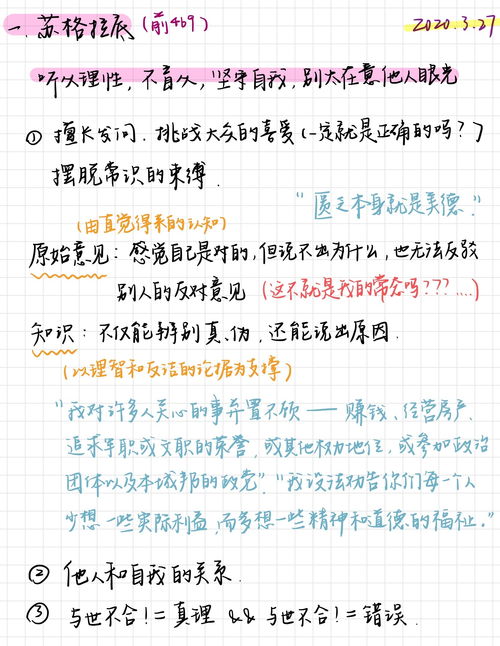 一. 苏格拉底 (前469) 2020.3.27
听从理性, 不盲从, 坚守自我, 别太在意他人眼光
① 擅长发问. 挑战大众的喜爱 (一定就是正确的吗?)
摆脱常识的束缚.
"匮乏本身就是美德."
(由直觉得来的认知)
原始意见: 感觉自己是对的, 但说不出为什么, 也无法反驳
别人的反对意见 (这不就是我的常态吗???....)
知识: 不仅能辨别真、伪, 还能说出原因.
(以理智和反诘的论据为支撑)
"我对许多人关心的事弃置不顾 —— 赚钱、经营房产、
追求军职或文职的荣誉, 或其他权力地位, 或参加政治
团体以及本城邦的政党" "我设法劝告你们每一个人
少想一些实际利益, 而多想一些精神和道德的福祉."
② 他人和自我的关系.
③ 与世不合 != 真理 && 与世不合 != 错误.